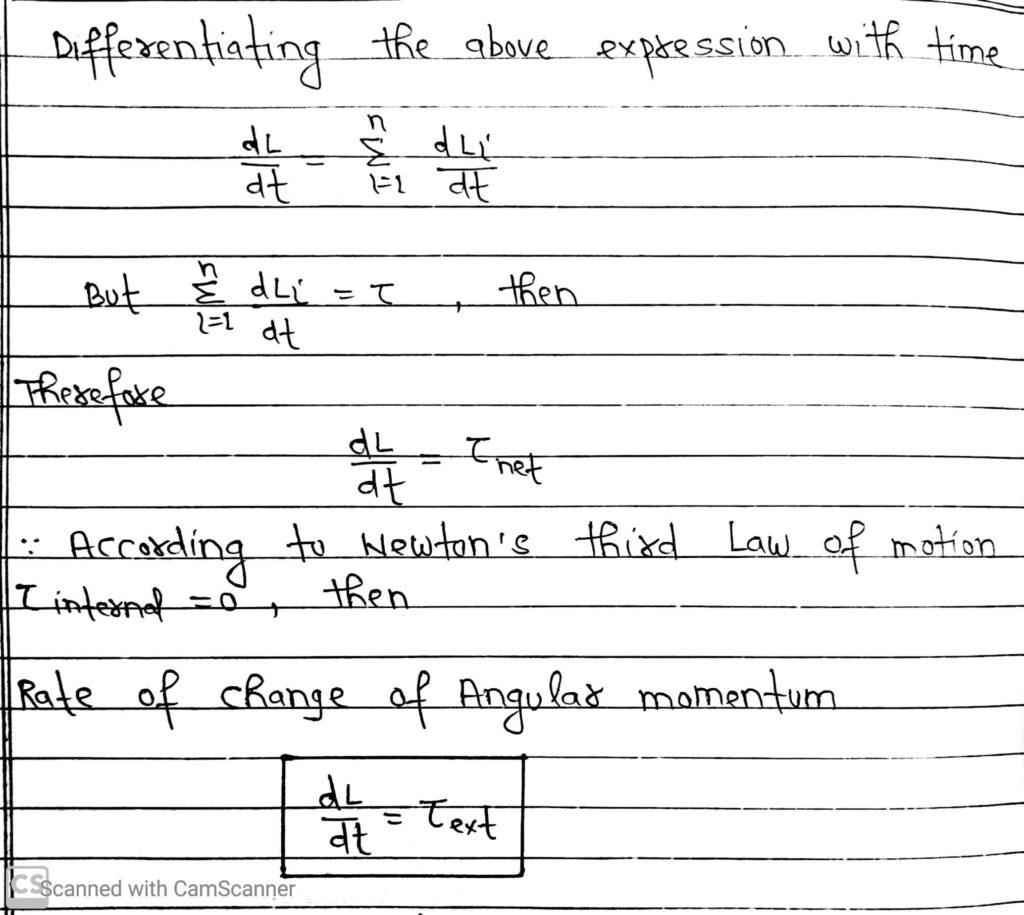 Differentiating the above expression with time
dL/dt = n Σ i=1 dLi/dt
But n Σ i=1 dLi/dt = τ , then
Therefore
dL/dt = τ net
∵ According to Newton's third Law of motion
τ internal = 0 , then
Rate of change of Angular momentum
dL/dt = τ ext
CS Scanned with CamScanner